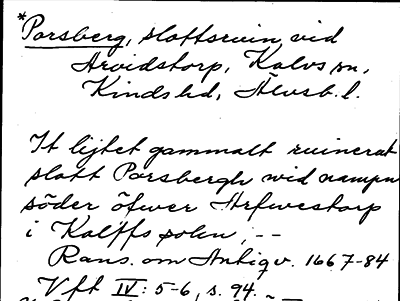 *Porsberg, slottsruin vid
Arvidstorp, Kalvs sn,
Kinds hd, Älvsb. l.
It lijtet gammalt ruinerat
slott Porsbergh wid nampn
söder öfwer Arfwestorp
i Kalffs sokn, --
Rans. om Antiqv. 1667-84
Vft IV: 5-6, s. 94.